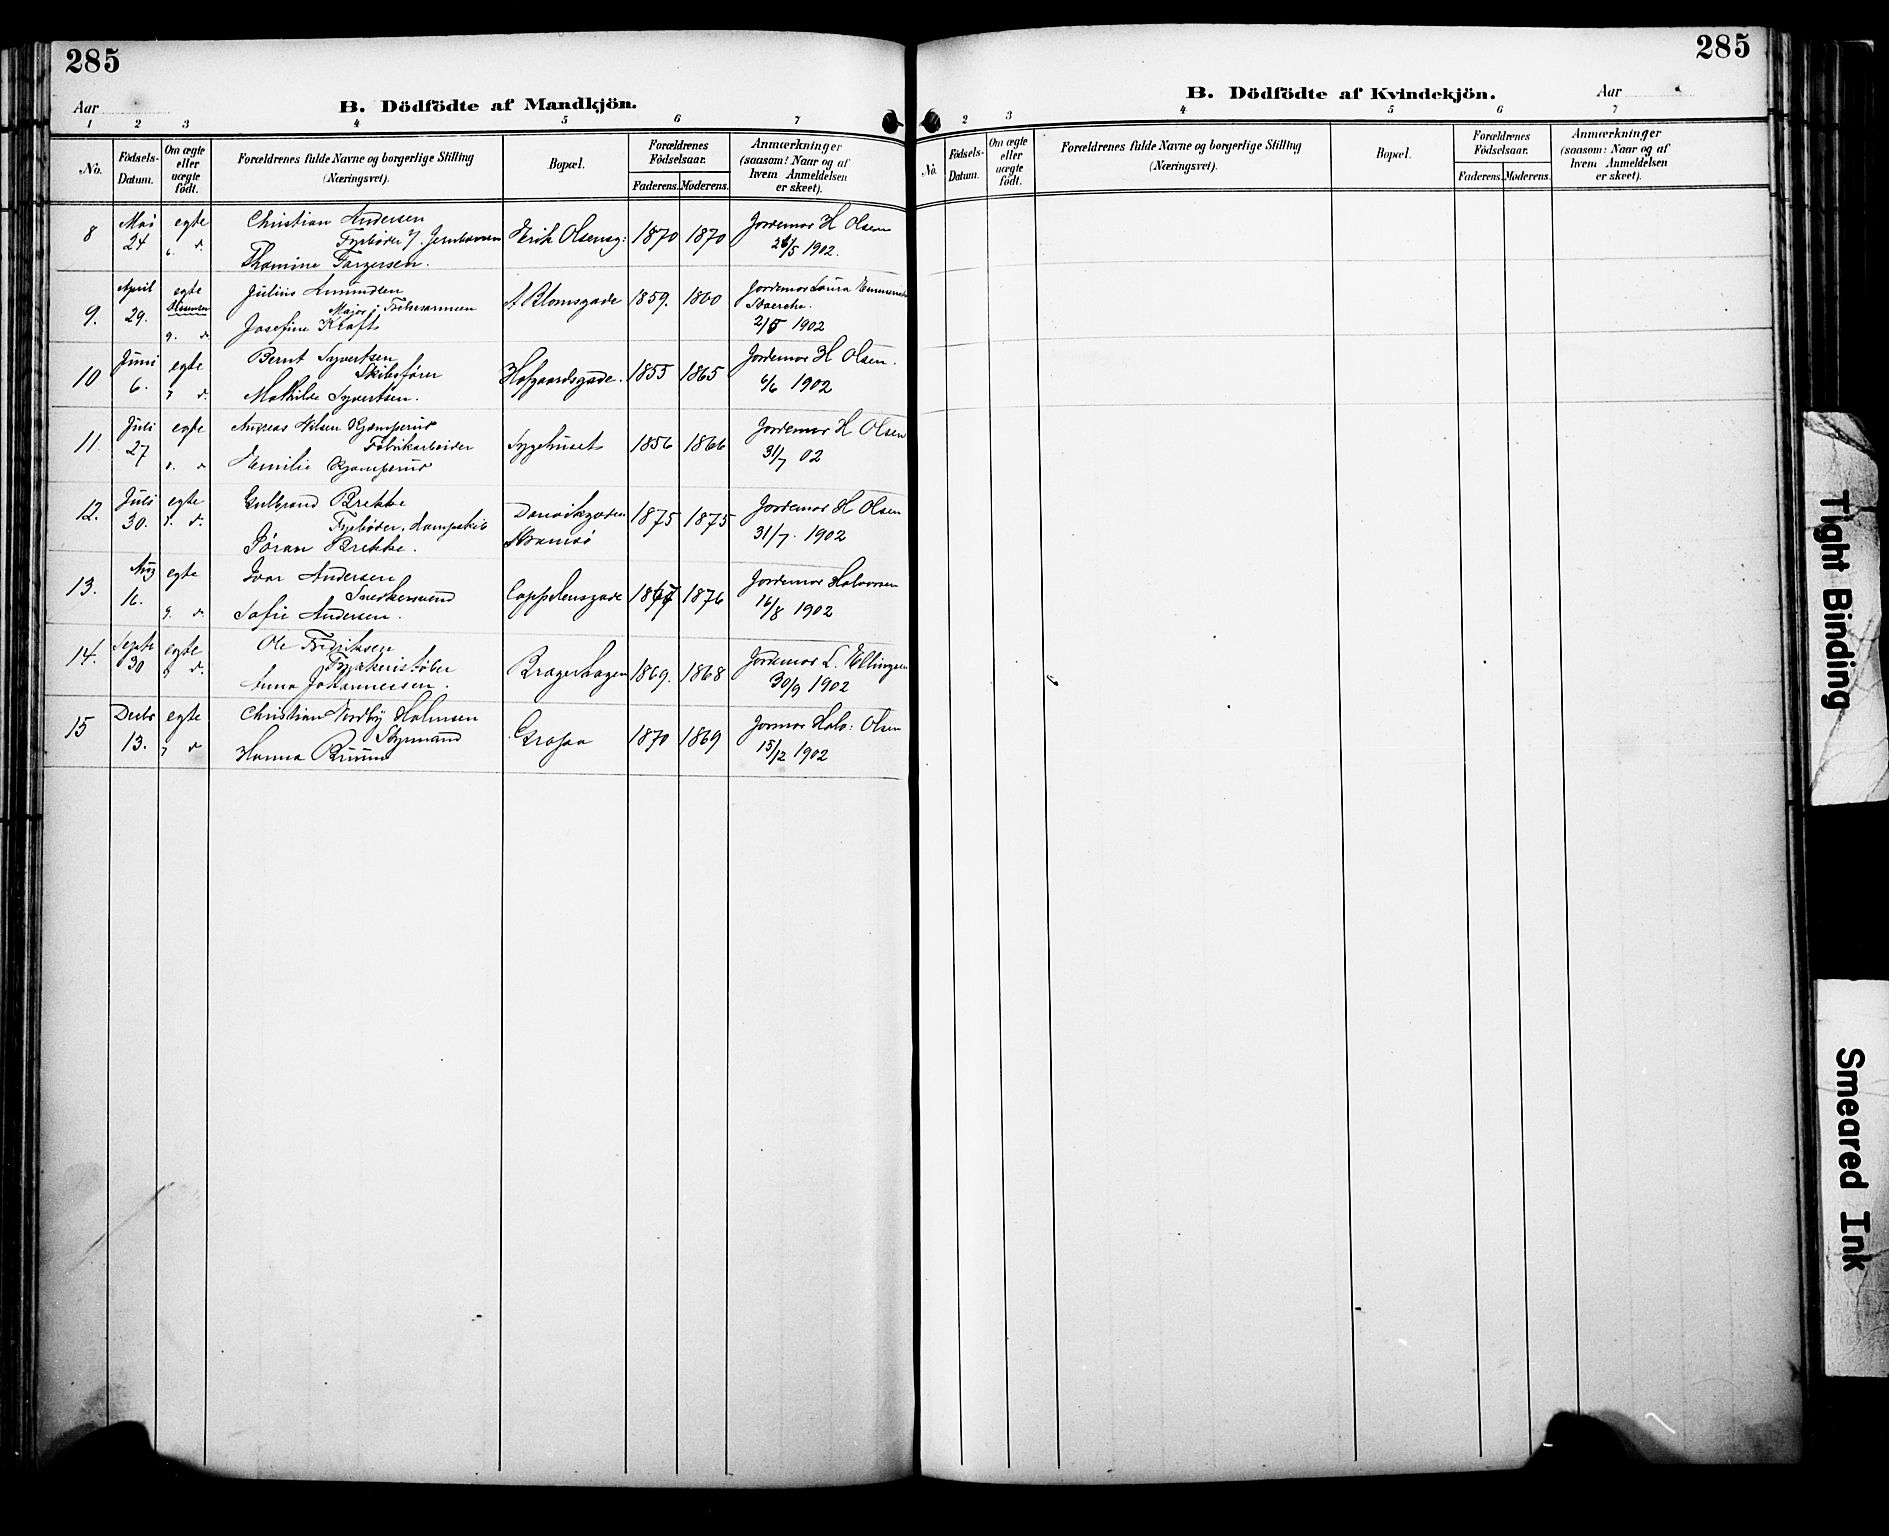 285
Aar
B. Dödfödte af Mandkjön.
1 2 3 4 5 6 7
No. Fødsels-Datum. Om ægte eller uægte født. Forældrenes fulde Navne og borgerlige Stilling (Næringsvei). Bopæl. Forældrenes Fødselsaar. Faderens. Moderens. Anmærkninger (saasom: Naar og af hvem Anmeldelsen er skeet).
8 Mai 24 egte 6. d.
Christian Andersen
Fyrbøder v/ Jernbanen
Thomine Torgersen.
Erik Olsensg: 1870 1870
Jordemor H Olsen
26/5 1902.
9. April 29. egte 9. d
Julius Amundsen
Major i Frelsesarmeen
Josefine Kraft
A Blomsgade 1859. 1860
Jordemor Laura
2/5 1902
10 Juni 6. egte 7 d.
Bernt Syvertsen
Skibsfører
Mathilde Syvertsen.
Hofgaardsgade. 1855 1865
Jordemor H Olsen.
6/6 1902
11. Juli 27 egte d
Andreas Nilsen Kjæmperud
Fabrikarbeider
Emilie Kjæmperud
Sygehuset 1856 1866
Jordemor H Olsen
31/7 02
12. Juli 30. egte d.
Gulbrand Brekke
Fyrbøder, Dampskib
Søran Brekke.
Danvikgaden
Strømsø
1875 1875
Jordemor H Olsen
31/7. 1902
13. Aug 16. egte 9. d.
Ivar Andersen
Snedkersvend
Sofie Andersen.
Cappelensgade 1876
Jordemor Halvorsen
16/8 1902
14. Septr 30 egte 9 d.
Ole Fredriksen
Anna Johannessen.
Bragerhagen 1869. 1868
Jordemor L. Ellingsen
30/9 1902
15 Decbr 13. egte 7 d
Christian Nordby Halmsen
Styrmand
Hanna Bruun
Grosaa 1870 1869
Jormor Halv: Olsen
15/12 1902
285
B. Dödfödte af Kvindekjön.
Aar
2 3 4 5 6 7
No. Fødsels-Datum. Om ægte eller uægte født. Forældrenes fulde Navne og borgerlige Stilling (Næringsvei). Bopæl. Forældrenes Fødselsaar. Faderens. Moderens. Anmærkninger (saasom: Naar og af hvem Anmeldelsen er skeet).
Tight Binding
Smeared Ink